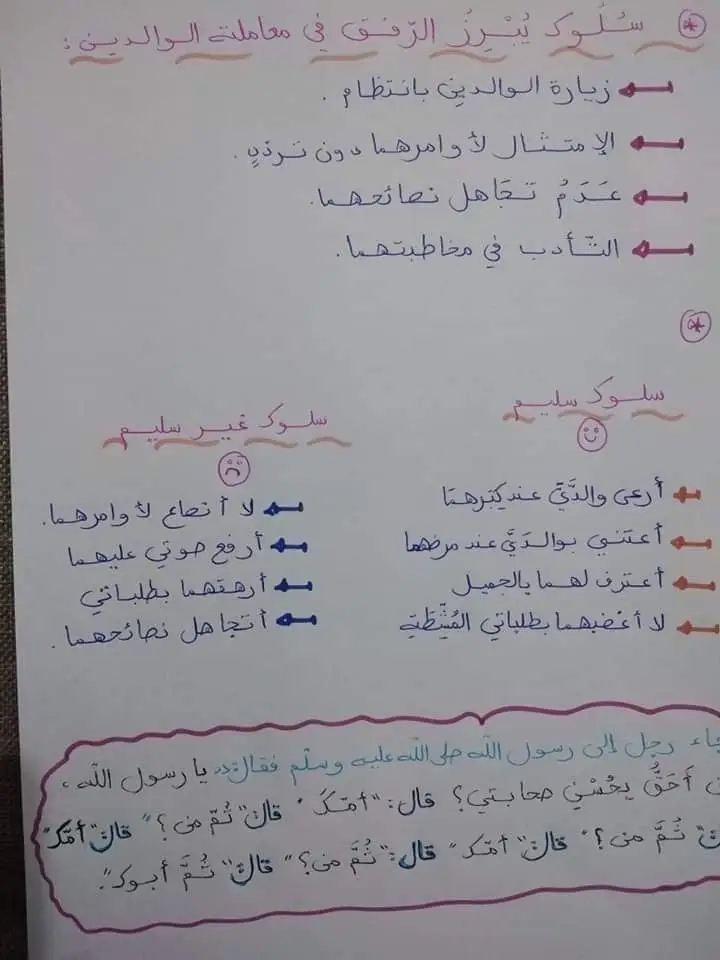 سُلُوك يُبْرِزُ الرّفق في معاملة الوالدين :
زيارة الوالدين بانتظام .
الإمتثال لأوامرهما دون تردّدٍ .
عَدَمُ تجَاهل نصائحهما.
التّأدب في مخاطبتهما.
سلوك سليم
أرعى والدَّيَّ عند كبرهمَا
أعتني بوالدَيَّ عند مرضهما
أعترف لهما بالجميل
لا أغضبهما بطلباتي المُشِطّةِ
سلوك غير سليم
لا أنصاع لأوامرهما.
أرفع صوتي عليهما
أرهقهما بطلباتي
أتجاهل نصائحهما.
جاء رجل إلى رسول الله صلى الله عليه وسلّم فقال: "يا رسول الله،
أَحَقُّ بِحُسْنِ صحابتي؟ قال: "أمّكَ" قال" ثُمّ من؟" قال"أمّك"
ثُمَّ من؟" قال" أمّك" قال:" ثُمَّ من؟" قال" ثُمَّ أبوك".